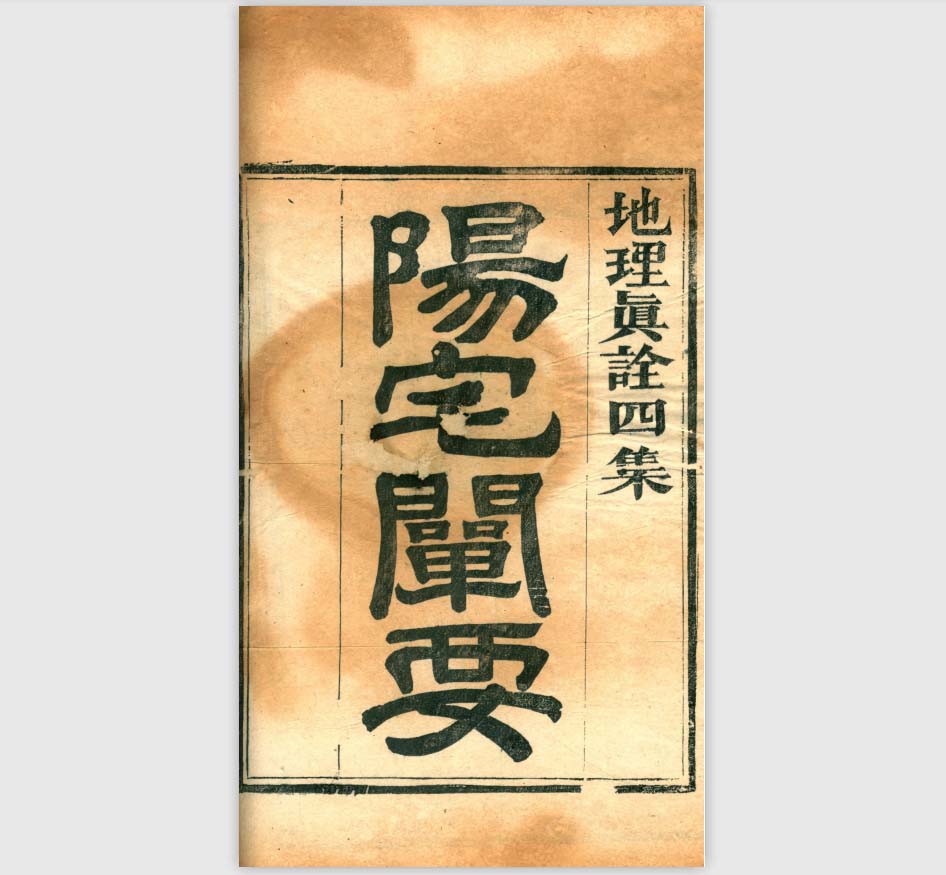 地理眞詮四集
陽宅闡要